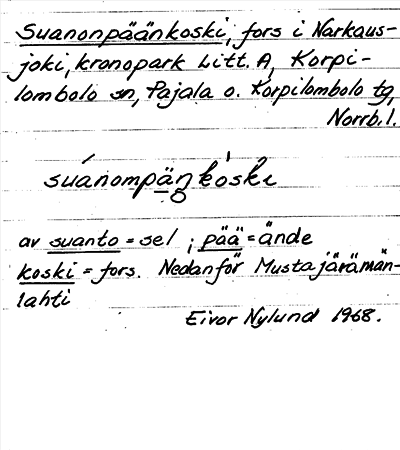 Suanonpäänkoski, fors i Narkaus-
joki, kronopark Litt. A, Korpi-
lombolo sn, Pajala o. Korpilombolo tg,
Norrb. l.
suanompäŋkoski
av suanto = sel ; pää = ände
koski = fors. Nedanför Mustajärämän-
lahti
Eivor Nylund 1968.